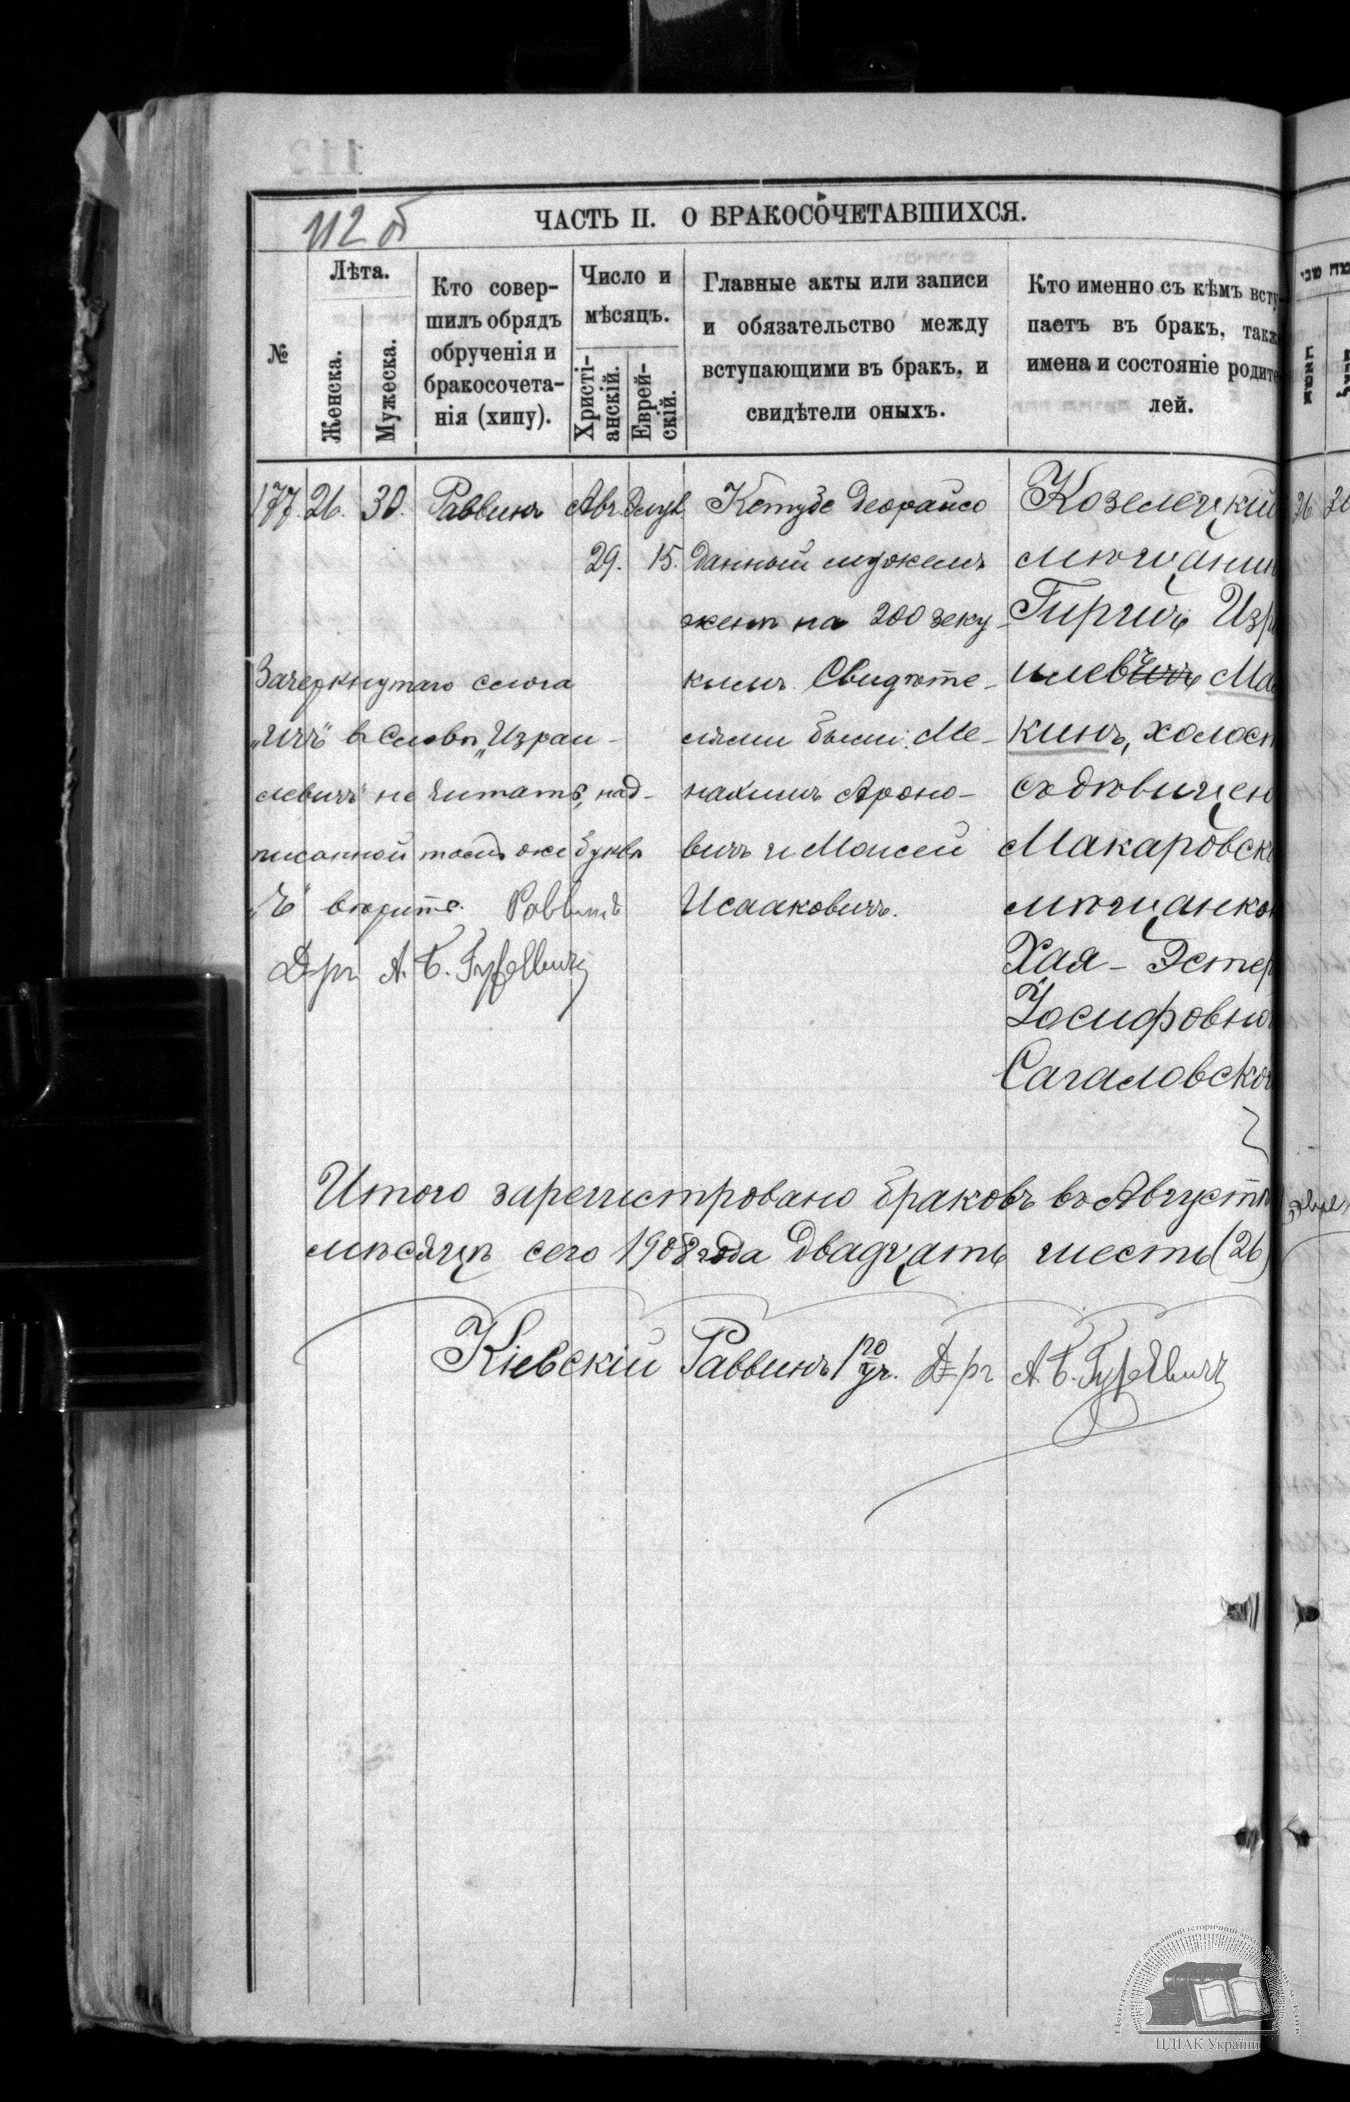 112 б
ЧАСТЬ II. О БРАКОСОЧЕТАВШИХСЯ.
№
Лѣта.
Женска.
Мужеска.
Кто совер-
шилъ обрядъ
обрученія и
бракосочета-
нія (хипу).
Число и
мѣсяцъ.
Христі-
анскій.
Еврей-
скій.
Главные акты или записи
и обязательство между
вступающими въ бракъ, и
свидѣтели оныхъ.
Кто именно съ кѣмъ всту-
паетъ въ бракъ, такж
имена и состояніе родите
лей.
177. 26. 30. Раввинъ Авг. Элул
29. 15.
Кетубе деорайсо
данный мужемъ
женѣ на 200 зеку-
кимъ. Свидѣте-
лями были: Ме-
нахимъ Ароно-
вичъ и Моисей
Исааковичъ.
Козелецкій
мѣщанин
Гиршъ Изр
илевъичъ Ма
кинъ, холост
съ дѣвицею
Макаровск
мѣщанкой
Хая-Эстер
Іосифовно
Сагаловской
Зачеркнутаго слога
„ичъ" въ словѣ „Израи-
левичъ" не читать, над-
писанной тамъ же буквѣ
„ъ" вѣрить. Раввинъ
Д-ръ А. Б. Гуревичъ
Итого зарегистровано браковъ въ Августѣ
мѣсяцѣ сего 1908 года двадцать шесть (26)
Кіевскій Раввинъ 1го уч. Д-ръ А. Б. Гуревичъ
ЦДІАК України